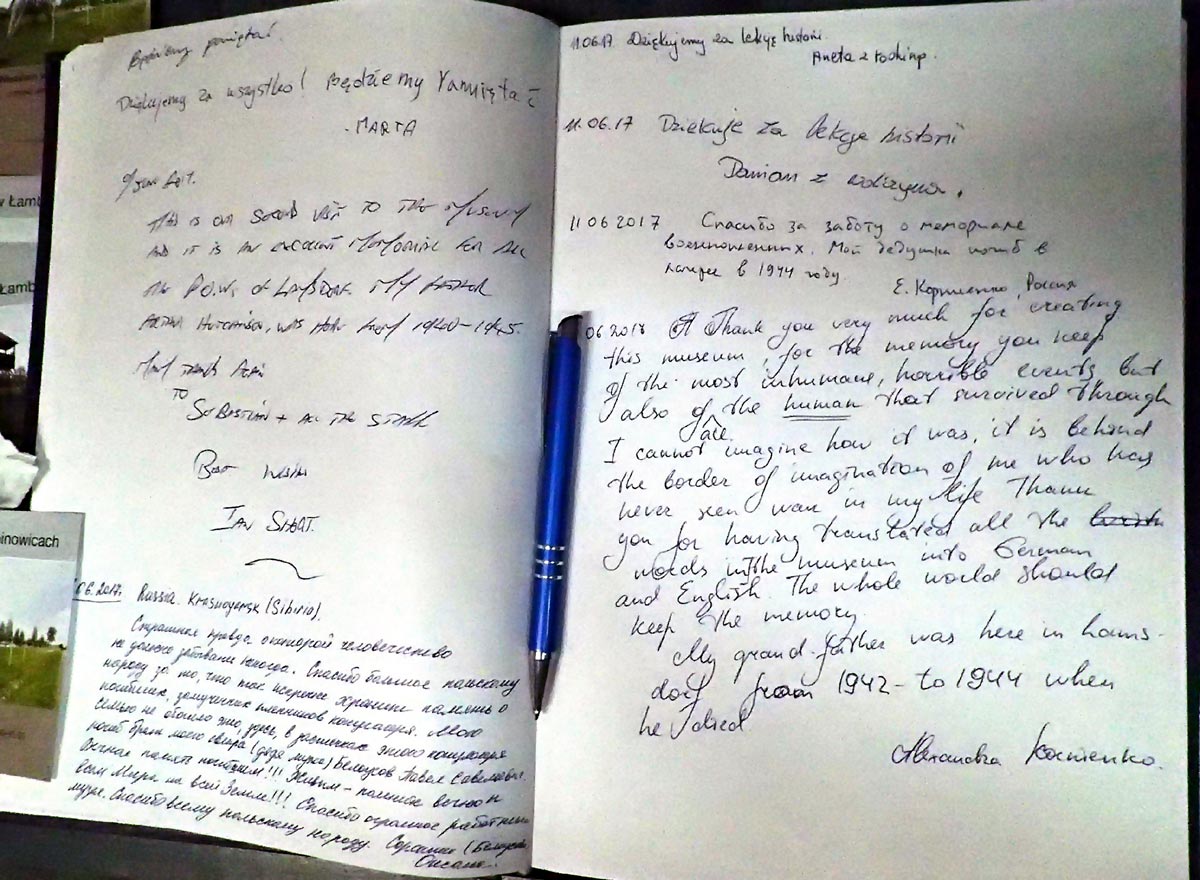 Będziemy pamiętać.
Dziękujemy za wszystko! Będziemy Pamiętać
- MARTA
THIS IS OUR SECOND VISIT TO THE MUSEUM
AND IT IS AN EXCELLENT MEMORIAL FOR ALL
THE P.O.W.s OF LAMSDORF MY FATHER
ARTHUR WAS HERE FROM 1940-1945.
MANY THANKS AGAIN
TO
SEBASTIAN + ALL THE STAFF
BEST WISHES
IAN
06.2017. Russia. Krasnoyarsk (Sibiria).
Страшная правда о которой человечество
не должно забывать никогда. Спасибо большое польскому
народу за то, что так искренне хранит память о
погибших, замученных пленниках концлагеря. Мою
семью не обошло это, здесь, в застенках этого концлагеря
погиб брат моего свёкра (дядя мужа) Белоусов Павел Савельевич.
Вечная память погибшим!!! Живым - помнить вечно и
всем Мира на всей Земле!!! Спасибо огромное работникам
музея. Спасибо всему польскому народу.
Оксана.
11.06.17 Dziękujemy za lekcję historii.
Aneta z rodziną.
11.06.17 Dziękuję za lekcję historii
Damian z rodziną.
11 06 2017 Спасибо за заботу о мемориале
военнопленных. Мой дедушка погиб в
лагере в 1944 году.
Е. Корниенко, Россия
06 2018 Thank you very much for creating
this museum, for the memory you keep
of the most inhumane, horrible events but
also of the human that survived through
all.
I cannot imagine how it was, it is behind
the border of imagination of me who has
never seen war in my life Thank
you for having translated all the
words in the museum into German
and English. The whole world should
keep the memory.
My grand-father was here in Lams-
dorf from 1942- to 1944 when
he died
Alexandra Kornienko.
inowicach
w Łamb
Łamb